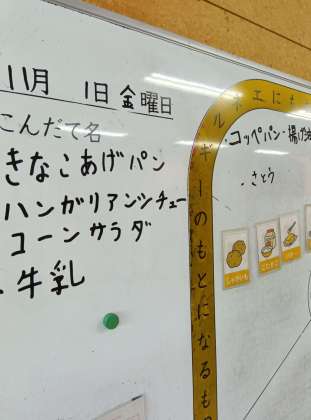 11月 1日 金曜日
こんだて名
きなこあげパン
ハンガリアンシチュー
コーンサラダ
牛乳
エネルギーのもとになるも
・コッペパン・揚げ油
・さとう
じゃがいも